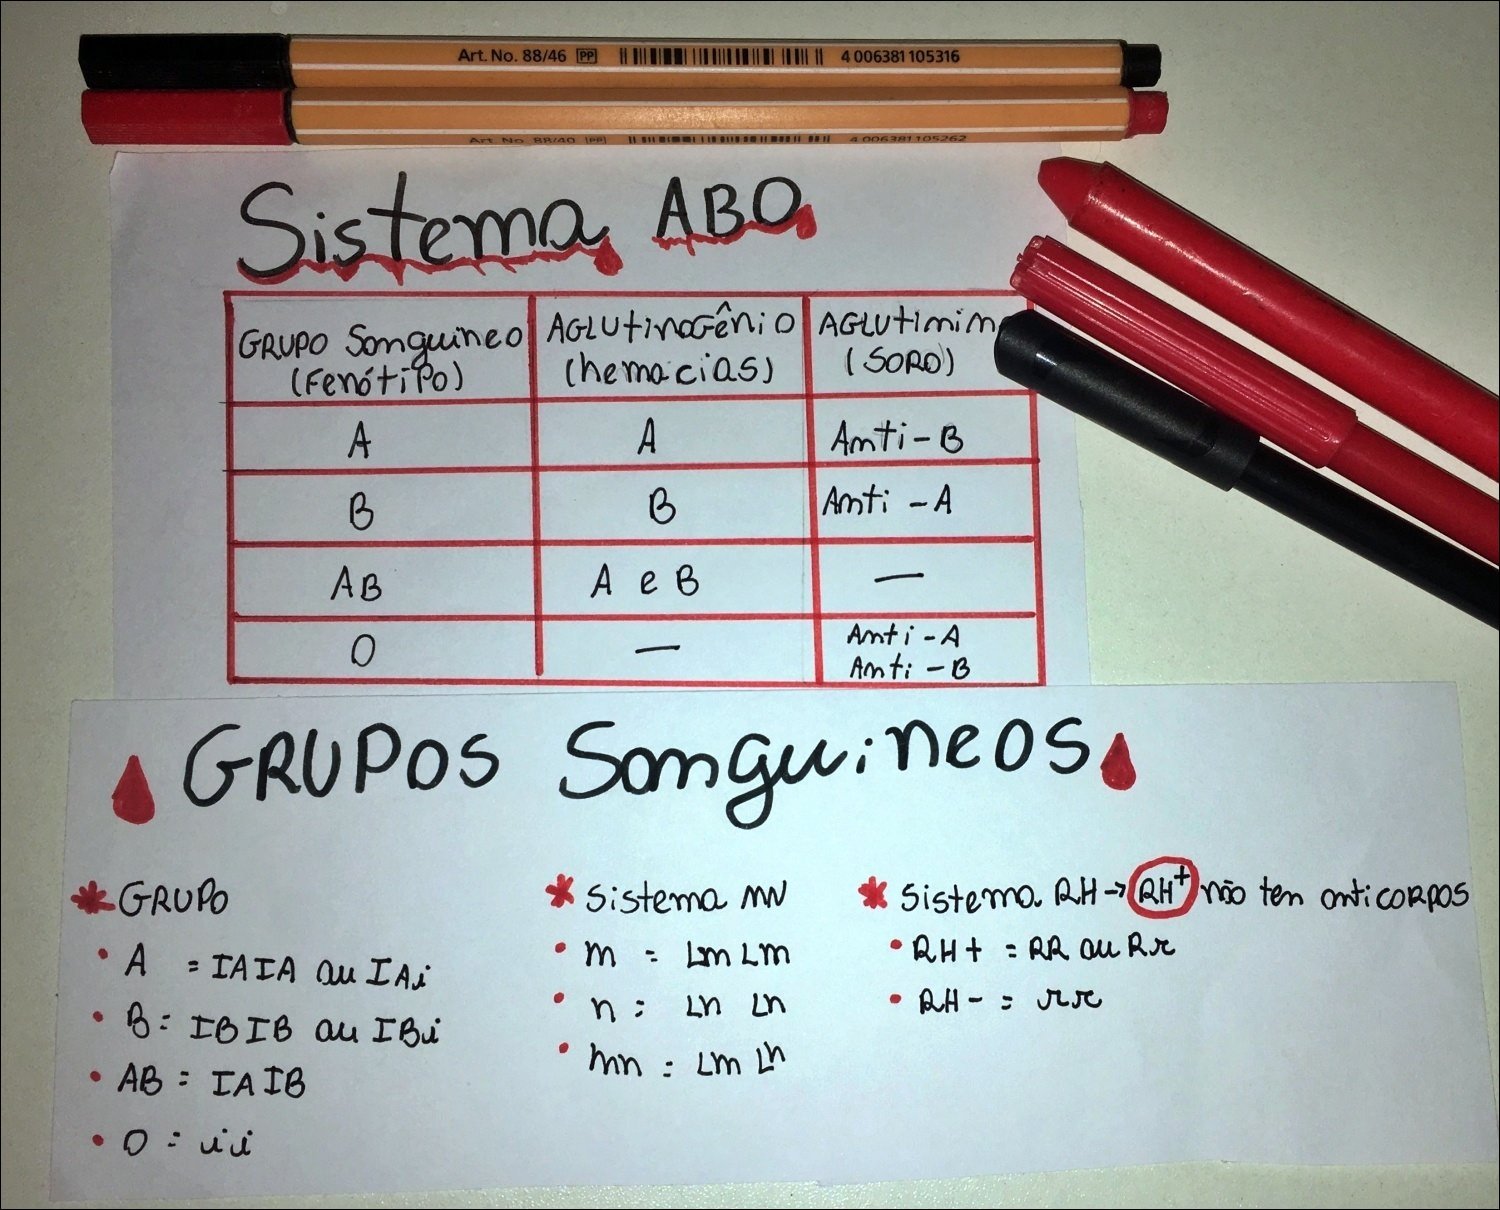 Art. No. 88/46 PP 4 006381 105316
Art. No. 88/40 PP 4 006381 105262
Sistema ABO
GRUPO Sanguineo (Fenótipo)
AGLUtinoGênio (hemacias)
(SORO)
A A Anti-B
B B Anti-A
AB A e B —
O — Anti-A
Anti-B
GRUPOS Sanguineos
* GRUPO
• A = IAIA ou IAi
• B = IBIB ou IBi
• AB = IAIB
• O = ii
* Sistema MN
• m = LmLm
• n = Ln Ln
• mn = Lm Ln
* Sistema RH → RH+ não ten anticorpos
• RH+ = RR ou Rr
• RH- = rr